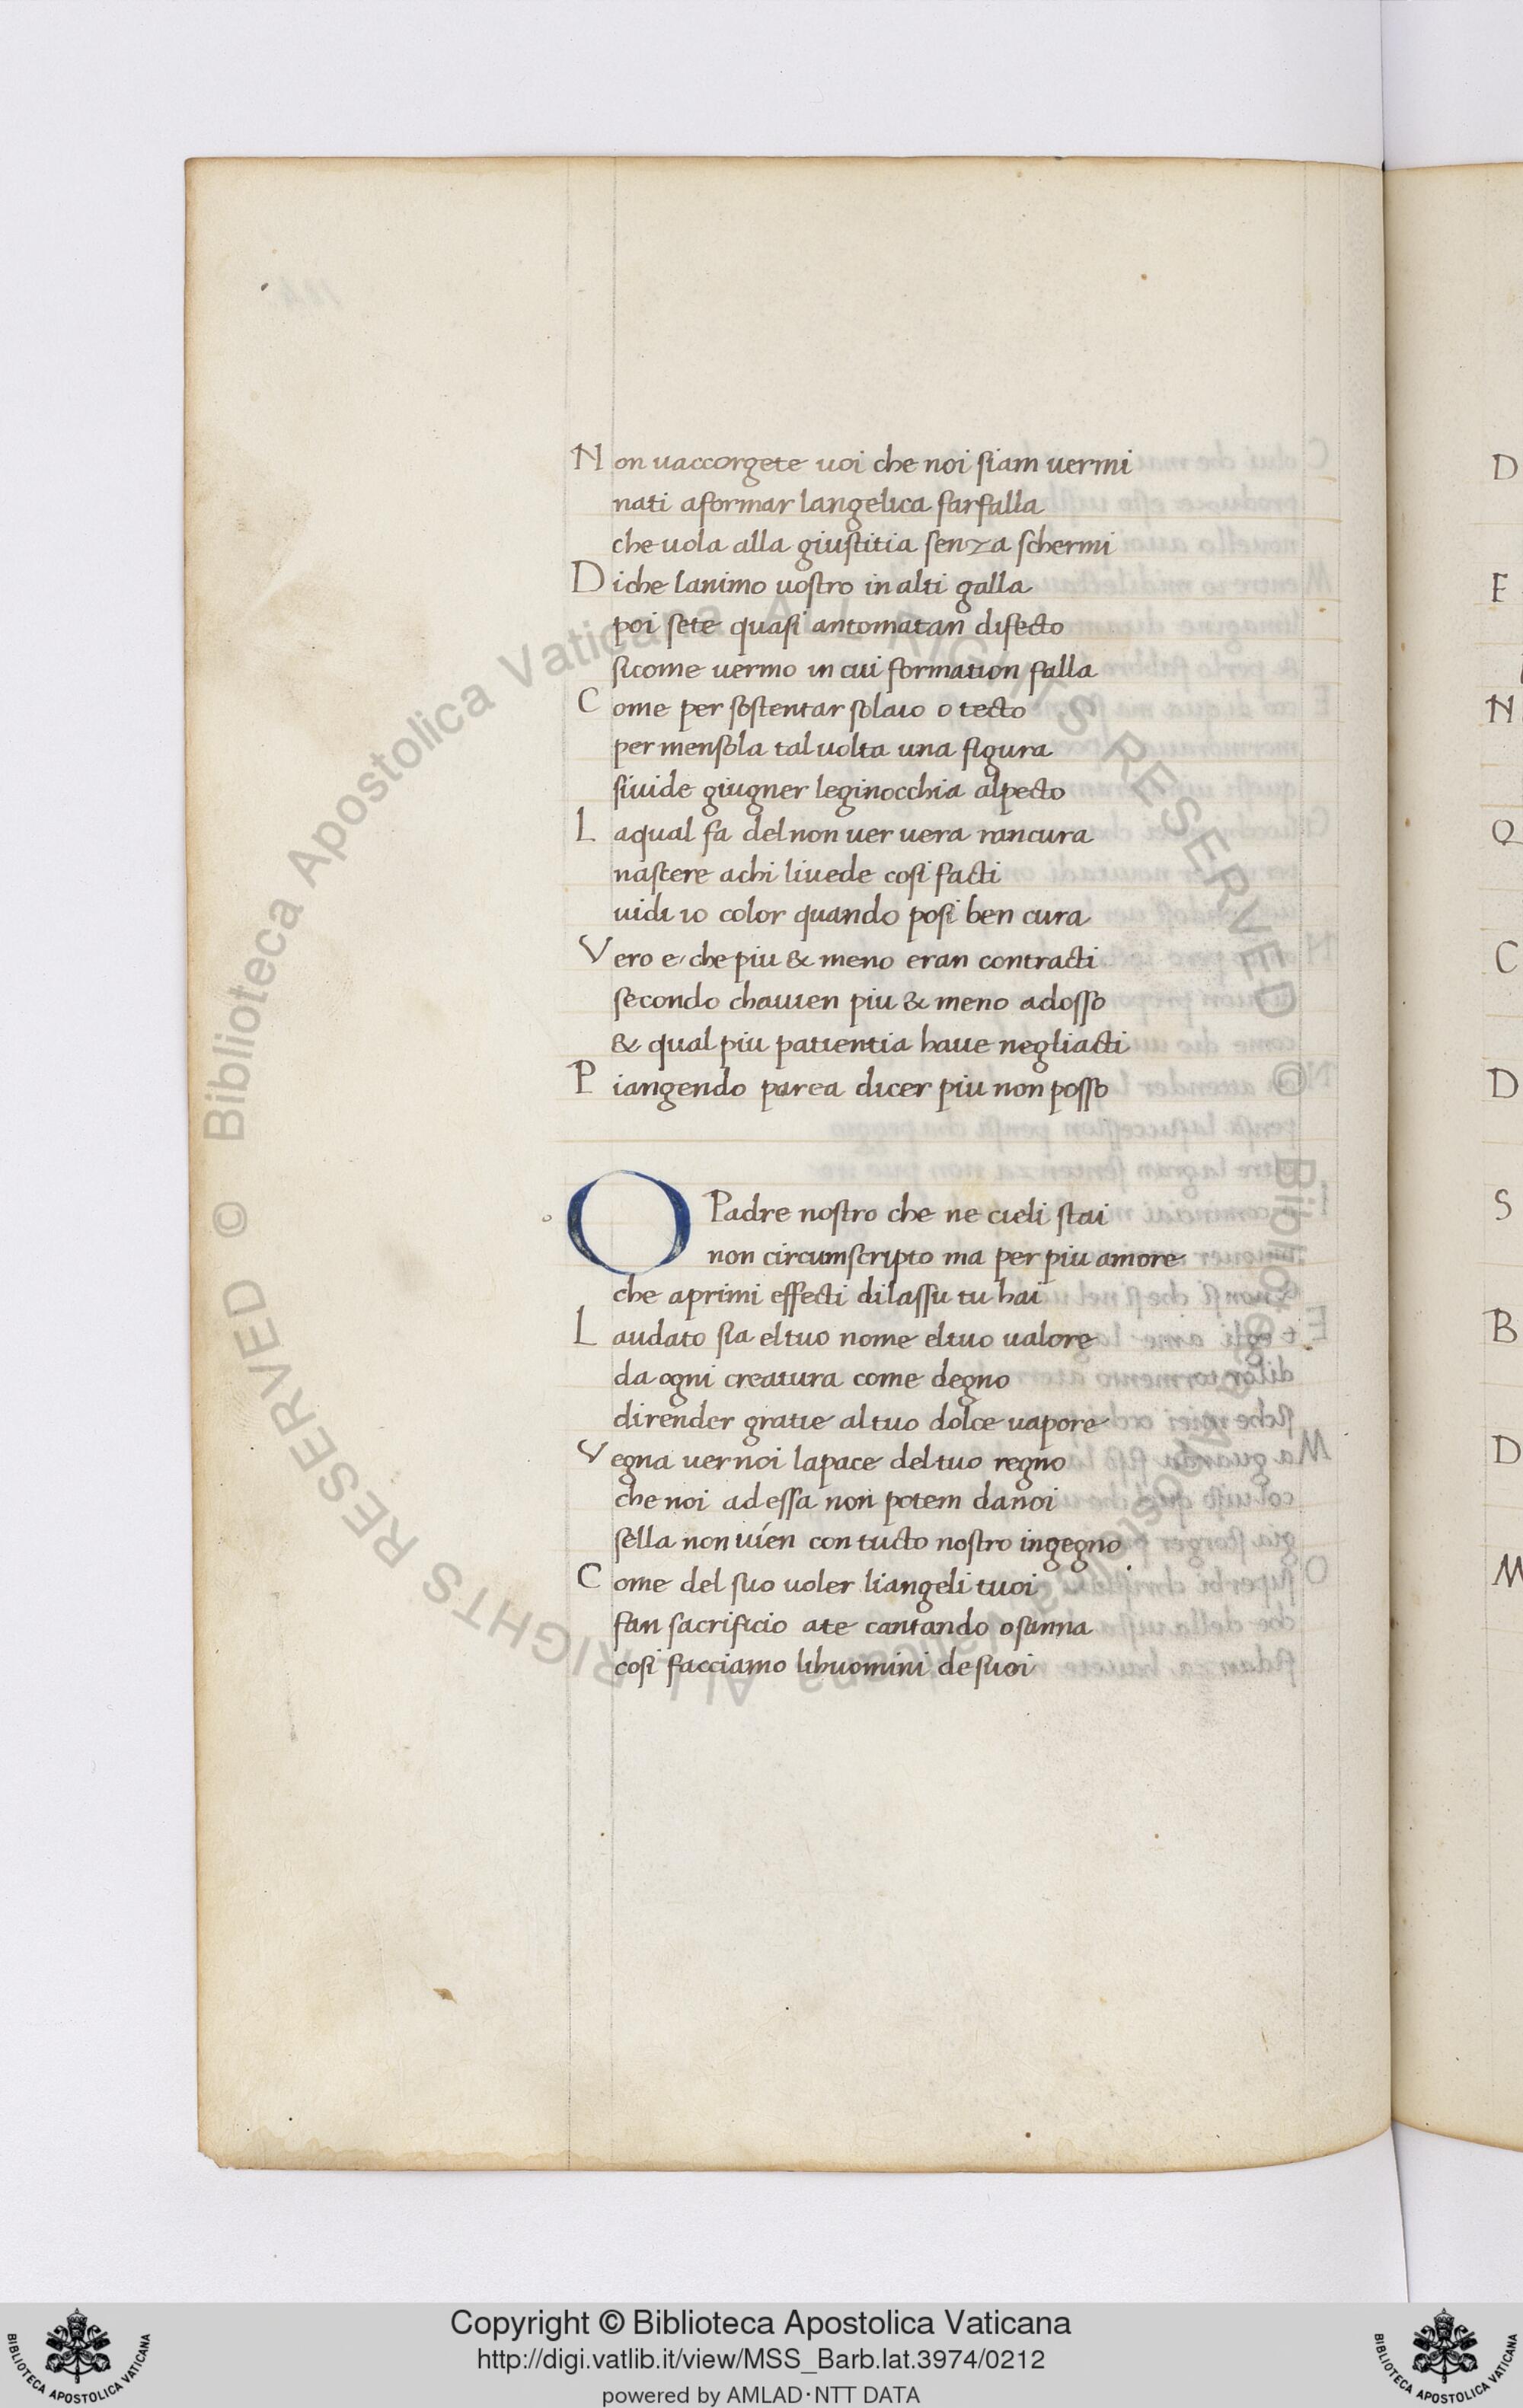 Non uaccorgete uoi che noi siam uermi
nati aformar langelica farfalla
che uola alla giustitia senza schermi
Diche lanimo uostro in alti galla
poi sete quasi antomatan difecto
sicome uermo in cui formation falla
Come per sostentar solaio o tecto
per mensola tal uolta una figura
siuide giugner leginocchia alpecto
Laqual fa del non uer uera rancura
nascere achi liuede cosi facti
uidi io color quando posi ben cura
Vero e che piu & meno eran contracti
secondo chauien piu & meno adosso
& qual piu patientia haue negliacti
Piangendo parea dicer piu non posso
O Padre nostro che ne cieli stai
non circumscripto ma per piu amore
che aprimi effecti dilassu tu hai
Laudato sia eltuo nome eltuo ualore
da ogni creatura come degno
dirender gratie altuo dolce uapore
Vegna uer noi lapace deltuo regno
che noi ad essa non potem danoi
sella non uien con tucto nostro ingegno
Come del suo uoler liangeli tuoi
fan sacrificio ate cantando osanna
cosi facciamo lihuomini desuoi
D
F
N
Q
C
D
S
B
D
M
© Biblioteca Apostolica Vaticana ALL RIGHTS RESERVED
© Biblioteca Apostolica Vaticana ALL RIGHTS RESERVED
Copyright © Biblioteca Apostolica Vaticana
http://digi.vatlib.it/view/MSS_Barb.lat.3974/0212
powered by AMLAD·NTT DATA
BIBLIOTECA APOSTOLICA VATICANA
BIBLIOTECA APOSTOLICA VATICANA